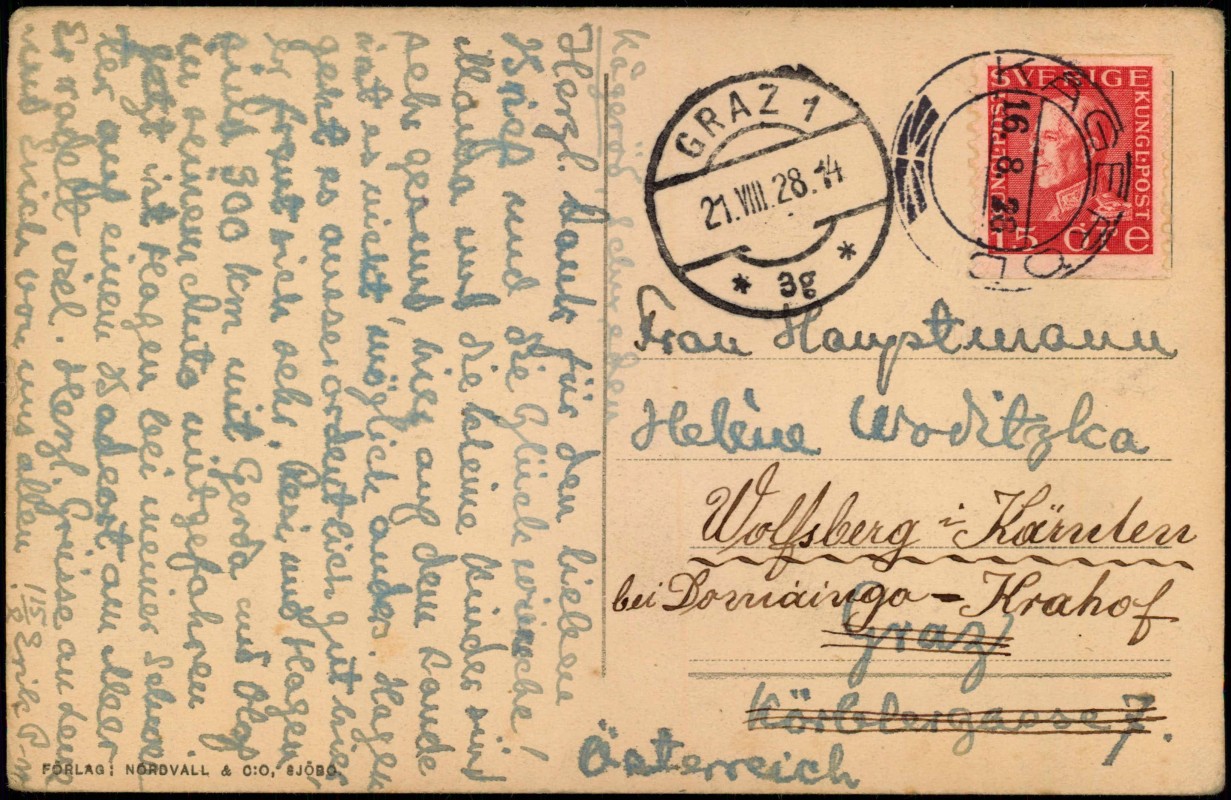 Kågeröd Schweden
Herzl. Dank für den lieben
Brief und die Glückwünsche!
Mama und die kleine Kinder sind
sehr gesund hier auf dem Lande
ist es nicht möglich anders. Hagen
geht es ausserordentlich gut hier
Er freut sich sehr, Resi und Hagen
sind 900 km mit Gerda und Olof
in seinem Auto mitgefahren
Jetzt ist Hagen bei meiner Schwes
ter auf einem Badeort am Meer
Er radelt viel. Herzl. Grüsse an dem
und Dich von uns allen
15/8 Erik
FÖRLAG: NORDVALL & C:O, SJÖBO.
GRAZ 1
21.VIII.28.14
* 3g *
KÅGERÖD
16.8.28
SVERIGE
KUNGL·POST
15 ÖRE
Frau Hauptmann
Helène Woditzka
Wolfsberg i Kärnten
bei Domaingo - Krahof
Graz
Körblergasse 7.
Österreich